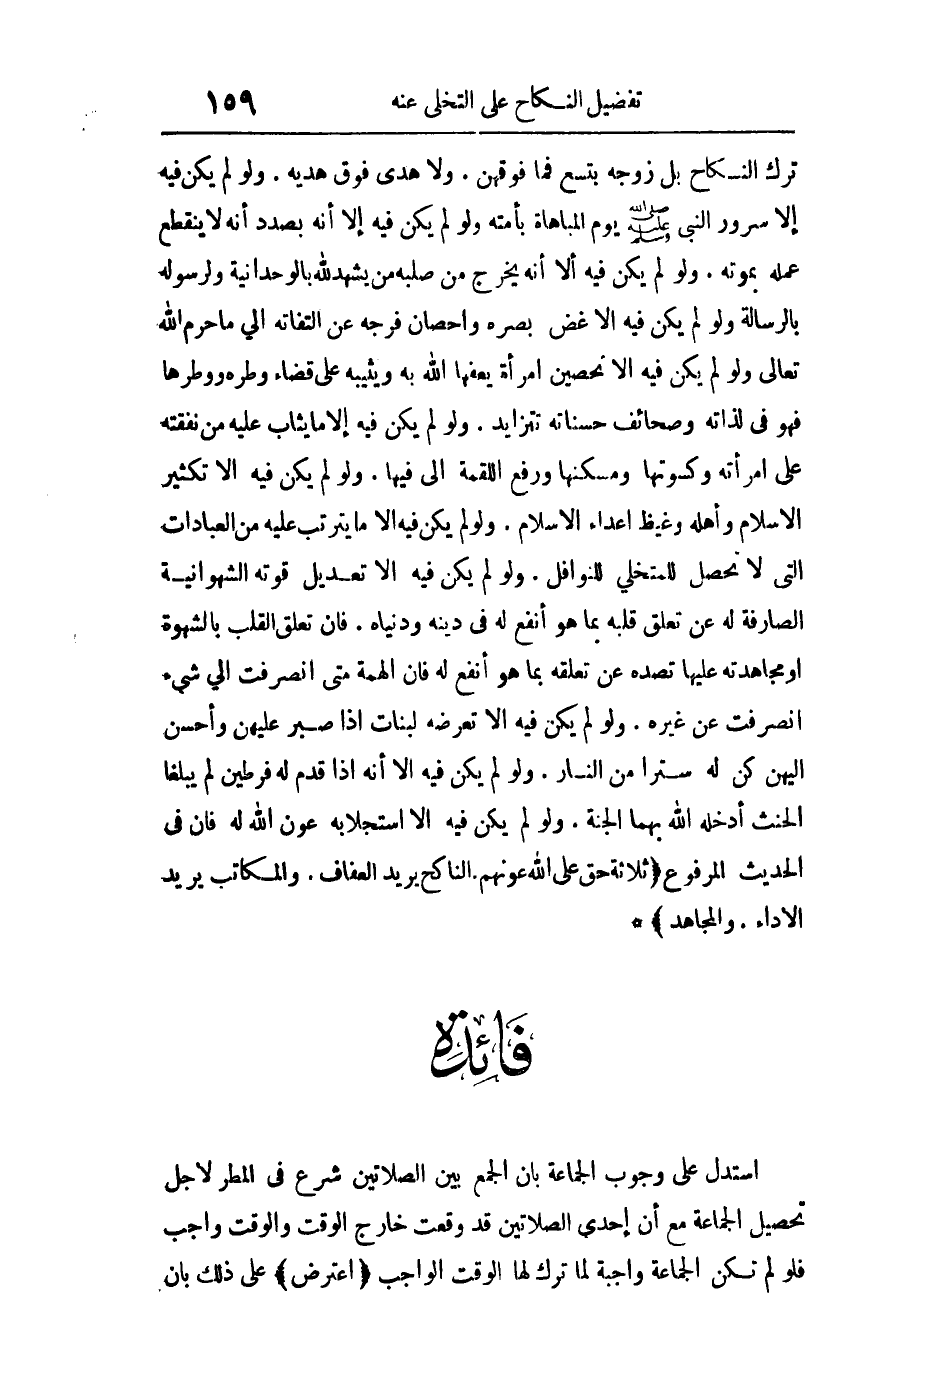 تفضيل النكاح على التخلى عنه ١٥٩
ترك النكاح بل زوجه بتسع فما فوقهن . ولا هدى فوق هديه . ولو لم يكن فيه
إلا سرور النبى ﷺ يوم المباهاة بأمته ولو لم يكن فيه إلا أنه بصدد أنه لا ينقطع
عمله بموته . ولو لم يكن فيه ألا أنه يخرج من صلبه من يشهد لله بالوحدانية ولرسوله
بالرسالة ولو لم يكن فيه الا غض بصره واحصان فرجه عن التفاته الي ماحرم الله
تعالى ولو لم يكن فيه الا تحصين امرأة يعفها الله به ويثيبه على قضاء وطره ووطرها
فهو فى لذاته وصحائف حسناته تتزايد . ولو لم يكن فيه إلا مايثاب عليه من نفقته
على امرأته وكسوتها ومسكنها ورفع اللقمة الى فيها . ولو لم يكن فيه الا تكثير
الاسلام وأهله وغيظ اعداء الاسلام . ولو لم يكن فيه الا ما يترتب عليه من العبادات
التى لا تحصل للمتخلي للنوافل . ولو لم يكن فيه الا تعديل قوته الشهوانية
الصارفة له عن تعلق قلبه بما هو أنفع له فى دينه ودنياه . فان تعلق القلب بالشهوة
او مجاهدته عليها تصده عن تعلقه بما هو أنفع له فان الهمة متى انصرفت الي شيء
انصرفت عن غيره . ولو لم يكن فيه الا تعرضه لبنات اذا صبر عليهن وأحسن
اليهن كن له سترا من النار . ولو لم يكن فيه الا أنه اذا قدم له فرطين لم يبلغا
الحنث أدخله الله بهما الجنة . ولو لم يكن فيه الا استجلابه عون الله له فان فى
الحديث المرفوع ﴿ ثلاثة حق على الله عونهم . الناكح يريد العفاف . والمكاتب يريد
الاداء . والمجاهد ﴾ *
فَائِدَة
استدل على وجوب الجماعة بان الجمع بين الصلاتين شرع فى المطر لاجل
تحصيل الجماعة مع أن إحدى الصلاتين قد وقعت خارج الوقت والوقت واجب
فلو لم تكن الجماعة واجبة لما ترك لها الوقت الواجب ﴿ اعترض ﴾ على ذلك بان